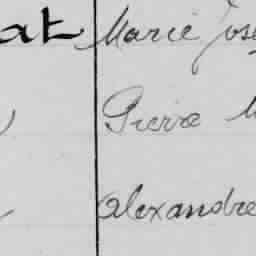 at Marie Jose
Pierre
Alexandre